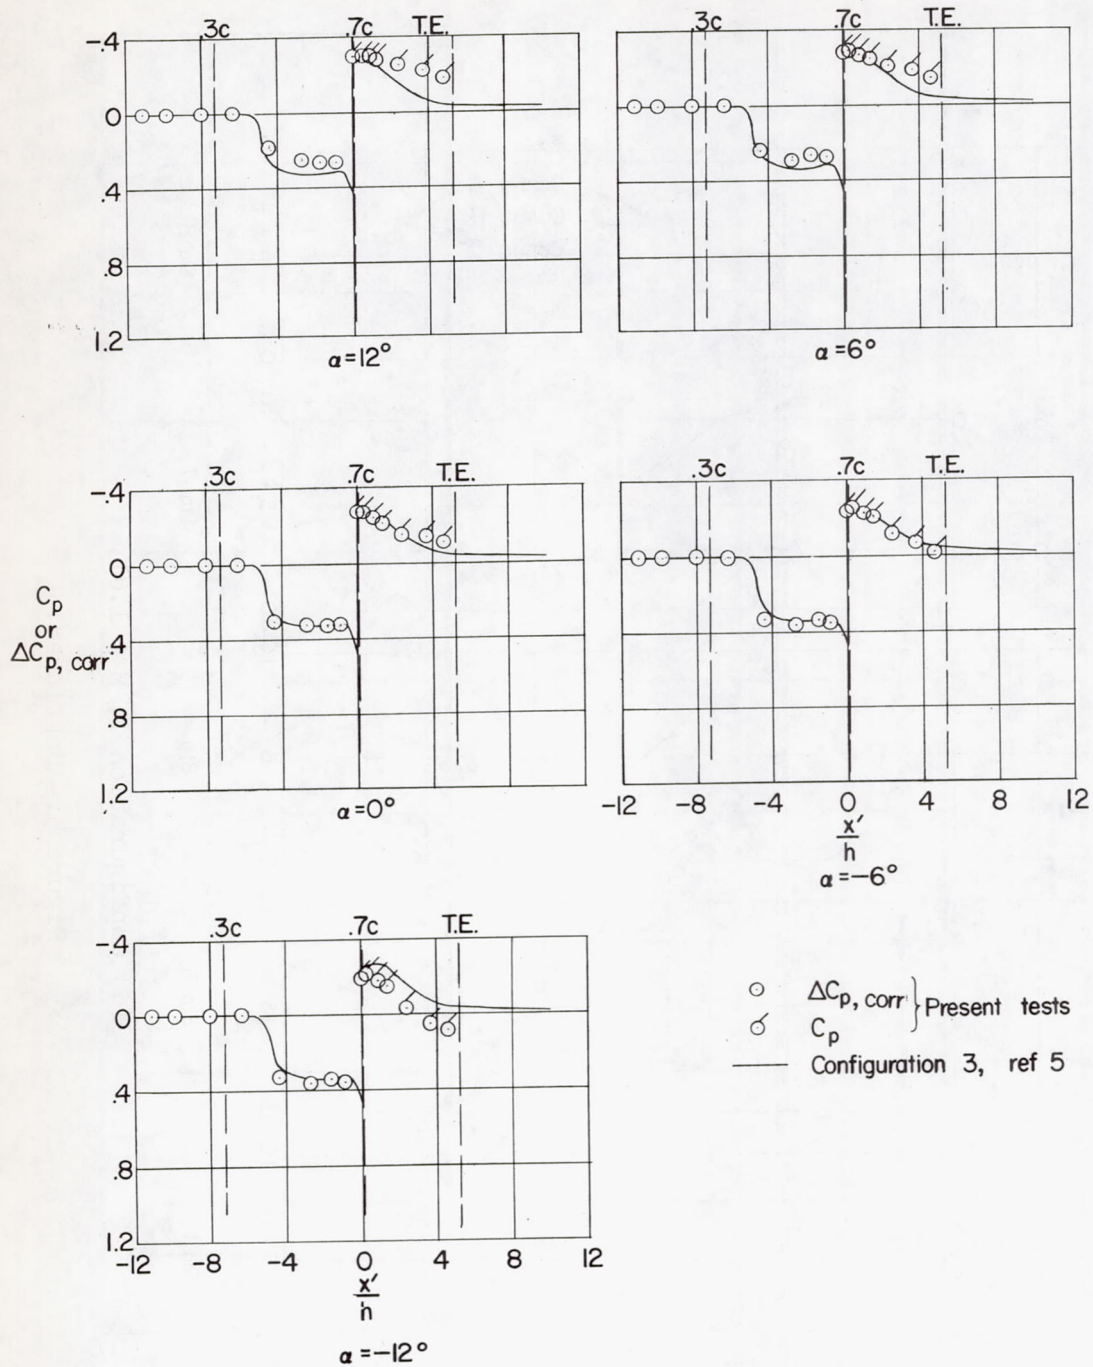 .3c .7c T.E.
-.4
0
.4
.8
1.2
α=12°
.3c .7c T.E.
α=6°
.3c .7c T.E.
-.4
0
.4
.8
1.2
Cp
or
ΔCp, corr
α=0°
.3c .7c T.E.
-12 -8 -4 0 4 8 12
x'
h
α=-6°
.3c .7c T.E.
-.4
0
.4
.8
1.2
-12 -8 -4 0 4 8 12
x'
h
α=-12°
ΔCp, corr
Cp
Present tests
Configuration 3, ref 5